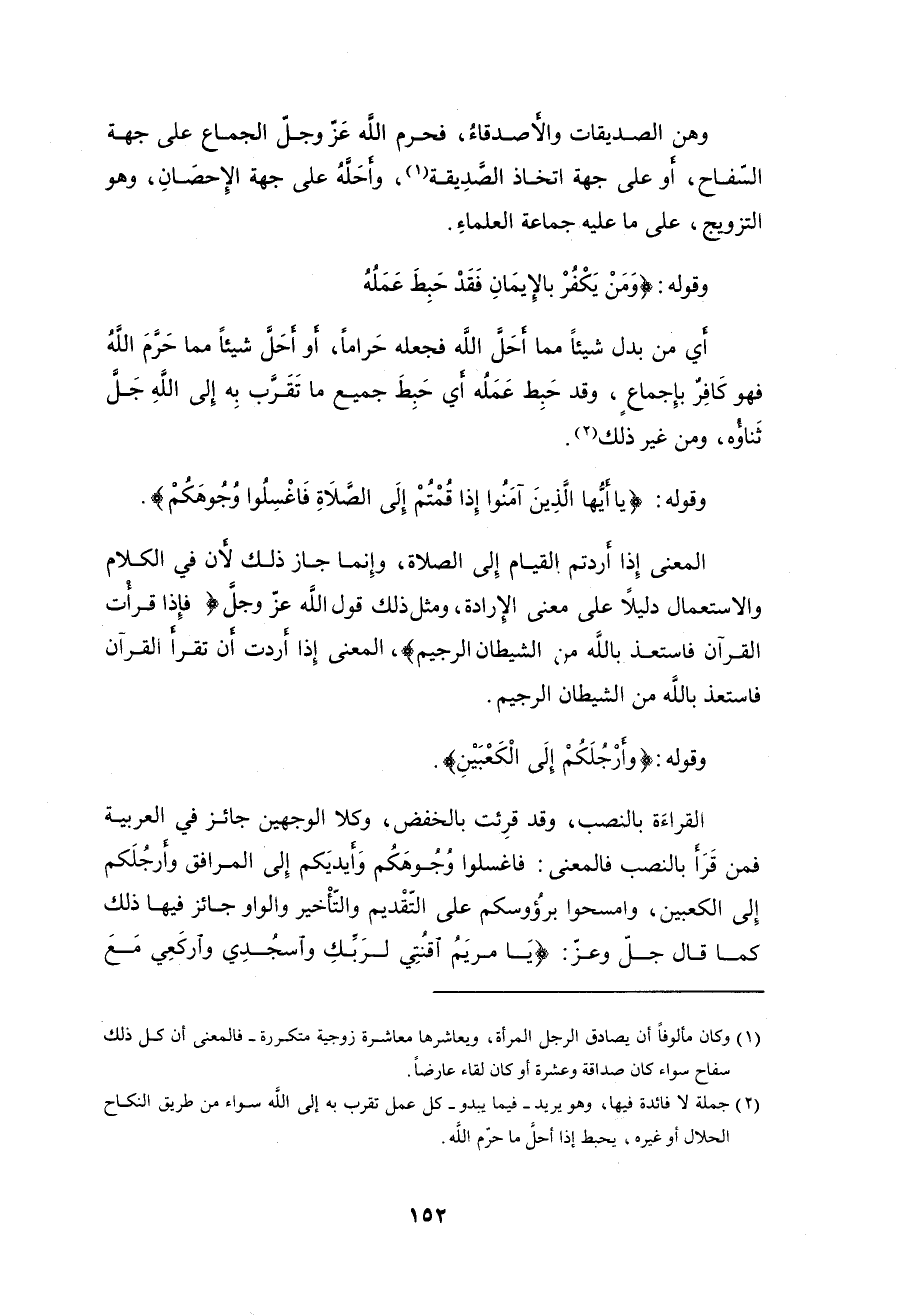 وهن الصديقات والأَصدقاءُ، فحرم اللَّه عَزّ وجلّ الجماع على جهة
السّفاح، أَو على جهة اتخاذ الصَّدِيقة(١)، وأَحَلَّهُ على جهة الإِحصَانِ، وهو
التزويج، على ما عليه جماعة العلماءِ.
وقوله: ﴿وَمَنْ يَكْفُرْ بالإِيمَانِ فَقَدْ حَبِطَ عَمَلُهُ
أَي من بدل شيئاً مما أَحَلَّ اللَّه فجعله حَراماً، أَو أَحَلَّ شيئاً مما حَرَّمَ اللَّهُ
فهو كَافِرٌ بإِجماعٍ، وقد حَبِط عَمَلُه أَي حَبِطَ جميع ما تَقَرَّب بِه إِلى اللَّهِ جَلَّ
ثَناؤُه، ومن غير ذلك(٢).
وقوله: ﴿يا أَيُّها الَّذِينَ آمَنُوا إِذا قُمْتُمْ إِلَى الصَّلَاةِ فَاغْسِلُوا وُجُوهَكُمْ﴾.
المعنى إِذا أَردتم القيام إِلى الصلاة، وإِنما جاز ذلك لأَن في الكلام
والاستعمال دليلًا على معنى الإِرادة، ومثل ذلك قول اللَّه عزّ وجلَّ ﴿ فإِذا قرأْت
القرآن فاستعذ باللَّه من الشيطان الرجيم﴾، المعنى إِذا أَردت أَن تقرأَ القرآن
فاستعذ باللَّه من الشيطان الرجيم.
وقوله: ﴿وأَرْجُلَكُمْ إِلَى الْكَعْبَيْنِ﴾.
القراءَة بالنصب، وقد قرِئت بالخفض، وكلا الوجهين جائز في العربية
فمن قَرَأَ بالنصب فالمعنى: فاغسلوا وُجُوهَكُم وَأَيديَكم إِلى المرافق وأَرجُلَكم
إِلى الكعبين، وامسحوا برؤوسكم على التّقْديم والتّأْخير والواو جائز فيها ذلك
كما قال جلّ وعزّ: ﴿يَا مريَمُ ٱقنُتِي لرَبِّكِ وٱسجُدِي وٱركَعِي مَعَ
(١) وكان مألوفاً أن يصادق الرجل المرأة، ويعاشرها معاشرة زوجية متكررة - فالمعنى أن كل ذلك
سفاح سواء كان صداقة وعشرة أو كان لقاء عارضاً.
(٢) جملة لا فائدة فيها، وهو يريد - فيما يبدو - كل عمل تقرب به إلى اللَّه سواء من طريق النكاح
الحلال أو غيره، يحبط إذا أحلَّ ما حرّم اللَّه.
١٥٢